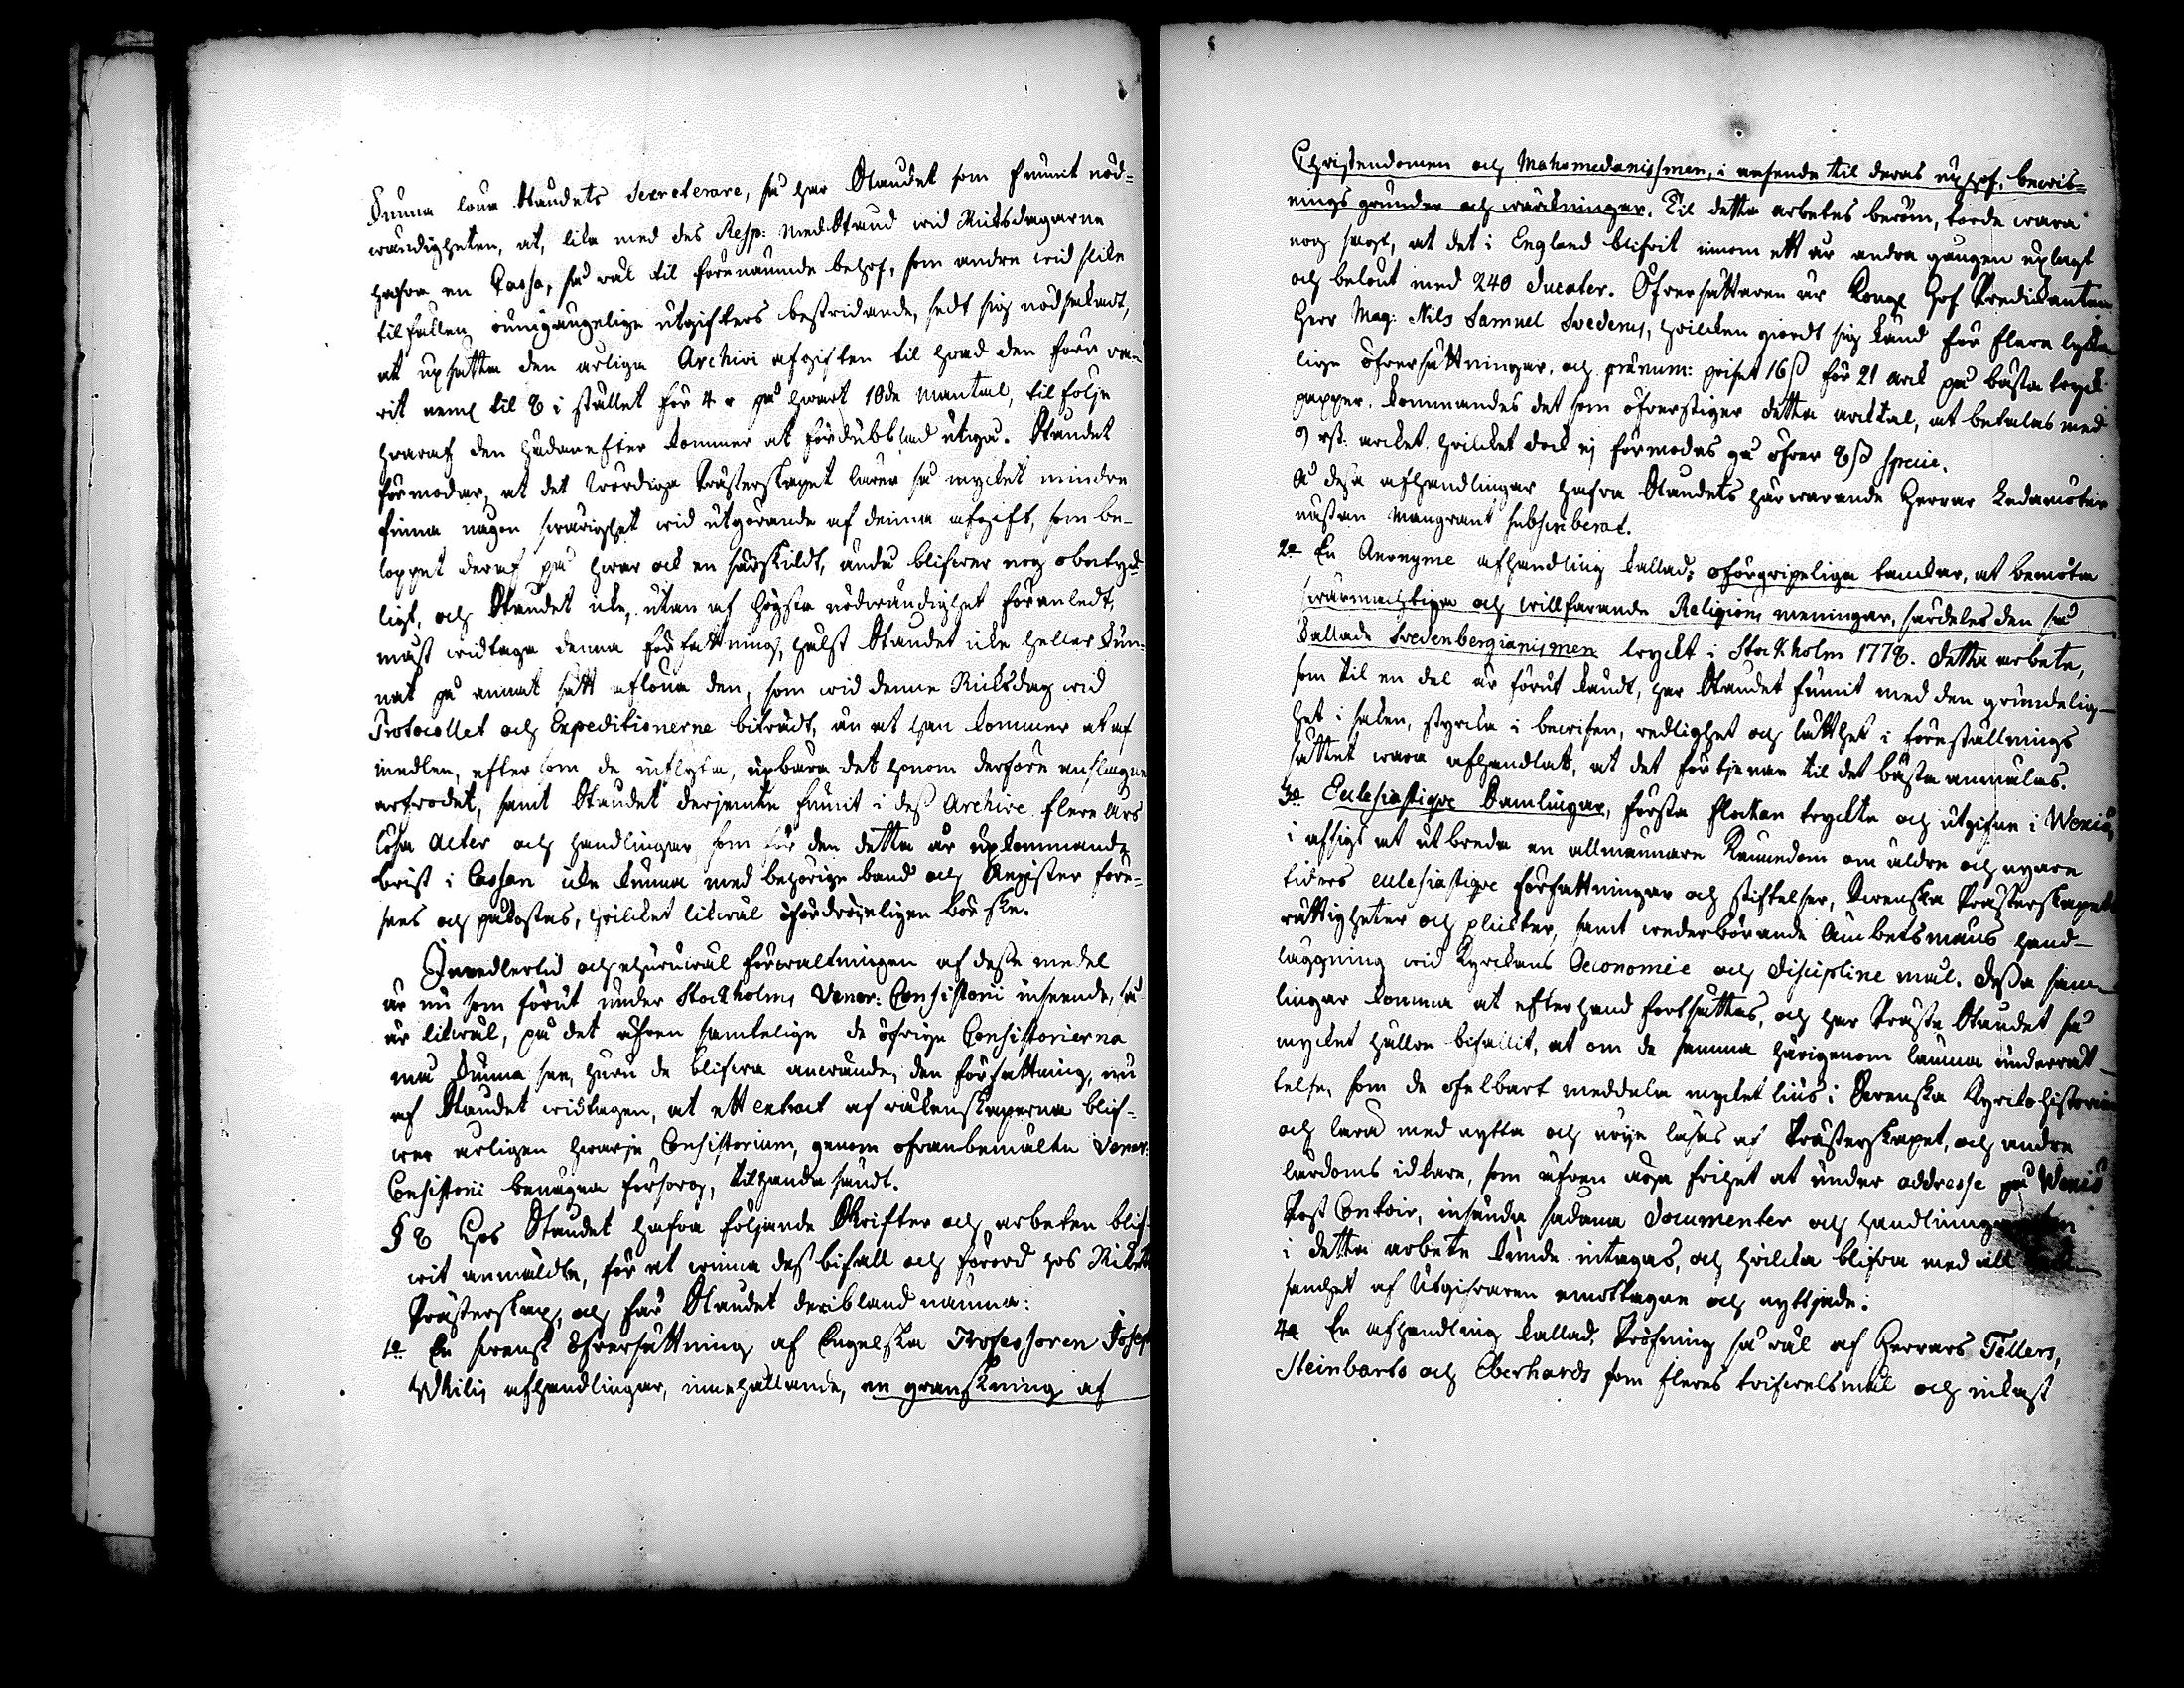 kunna löna Ståndets Secreterare, så har Ståndet som funnit nöd-
wändigheten, at, lika med des Resp: MedStånd wid Riksdagarne
hafva en Cassa, så wäl til förenämnde behof, som andre wid slike
tilfällen oumgängelige utgifters bestridande, sedt sig nödsakadt,
at upsättia den årliga Archivi afgiften til hwad den förr wa-
rit neml til 8 i stället för 4 r på hwart 10de Mantal, til följe
hwaraf den hädanefter kommer at fördubblad utgå. Ståndet
förmodar, at det Wördiga Prästerskapet lärer så mycket mindre
finna någon swårighet wid utgörande af denna afgift, som be-
loppet deraf på hwar och en särskildt, ändå blifwer nog obetyd-
ligt, och Ståndet icke, utan af högsta nödwändighet föranledt,
måst widtaga denna författning, hälst Ståndet icke heller kun-
nat på annat sätt aflöna den, som wid denne Riksdag wid
Protocollet och Expeditionerne biträdt, än at han kommer at af
medlen, efter som de inflyta, upbära det honom derföre anslagne
arfvodet, samt Ståndet derjemte funnit i dess Archive flere års
lösa Acter och handlingar, som för den detta år upkommande
brist i Cassan icke kunna med behörige band och Register före-
ses och påkostas, hvilket likwäl ofördröjeligen bör ske.
Imedlertid och ehuruwäl förwaltningen af desse medel
är nu som förut under Stockholms Vener: Consistorii inseende, så
är likwäl, på det äfven samtelige de öfrige Consistorierna
må kunna se, huru de blifwa anwände, den författning, nu
af Ståndet widtagen, at ett extract af räkenskaperna blif-
wer årligen hwarje Consistorium, genom ofvanbemälte Vener:
Consistorii benägna försorg, tilhanda sändt.
§ 8 Hos Ståndet hafva följande Skrifter och arbeten blif-
wit anmäldte, för at winna dess bifall och förord hos Rikets
Prästerskap, och får Ståndet deribland nämna:
1o En svensk Öfversättning af Engelska Professoren Josef
Whites afhandlingar, innehållande, en granskning af
Christendomen och Mahomedanismen, i anseende til deras uphof, bewis-
nings grunder och wärkningar. Til detta arbetes beröm, torde wara
nog sagt, at det i England blifvit innom ett år andra gången uplagt
och belönt med 240 ducater. Öfversättaren är Kongl Hof Predikanten
Herr Mag: Nils Samuel Svederus, hvilken giordt sig känd för flere lycke-
lige öfversättningar, och prænum: priset 16 ß för 21 ark på bästa tryck-
papper. kommandes det som öfverstiger detta arktal, at betalas med
9 rst. arket. hvilket dock ej förmodas gå öfver 8 ß specie.
På dessa afhandlingar hafva Ståndets härwarande Herrar Ledamöter
nästan mangrant subscriberat.
2o En Anonyme afhandling kallad: oförgripeliga tankar, at bemöta
swärmachtiga och willfarande Religions meningar, särdeles den så
kallade Svedenbergianismen tryckt i Stockholm 1778. detta arbete,
som til en del är förut kändt, har Ståndet funnit med den grundelig-
het i saken, styrcka i bewisen, redlighet och lätthet i föreställnings
sättet wara afhandlat, at det förtjenar til det bästa anmälas.
3o Ecclesiastique Samlingar, första flockan tryckte och utgifne i Wexiö,
i afsigt at utbreda en allmännare Kännedom om äldre och nyare
tiders ecclesiastique författningar och stiftelser, Svenska Prästerskapets
rättigheter och plickter, samt wederbörande Ämbetsmäns hand-
läggning wid Kyrckans Oeconomie och disciplins mål. Dessa sam-
lingar komma at efterhand fortsättas, och har Präste Ståndet så
mycket hällre bifallit, at om de samma härigenom lämna underrät-
telse, som de ofelbart meddela mycket lius i Svenska Kyrcko historien
och lära med nytta och nöje läsas af Prästerskapet, och andre
lärdoms idkare, som äfven äga frihet at under addresse på Wexiö
Post Contoir, insända sådana Documenter och handlingar
i detta arbete kunde intagas, och hvilka blifva med all
samhet af Utgifvaren emottagne och nyttjade.
4o En afhandling kallad, Pröfning så wäl af Herrars Tellers,
Steinbarts och Eberhards som fleres tvifvelsmål och inkast